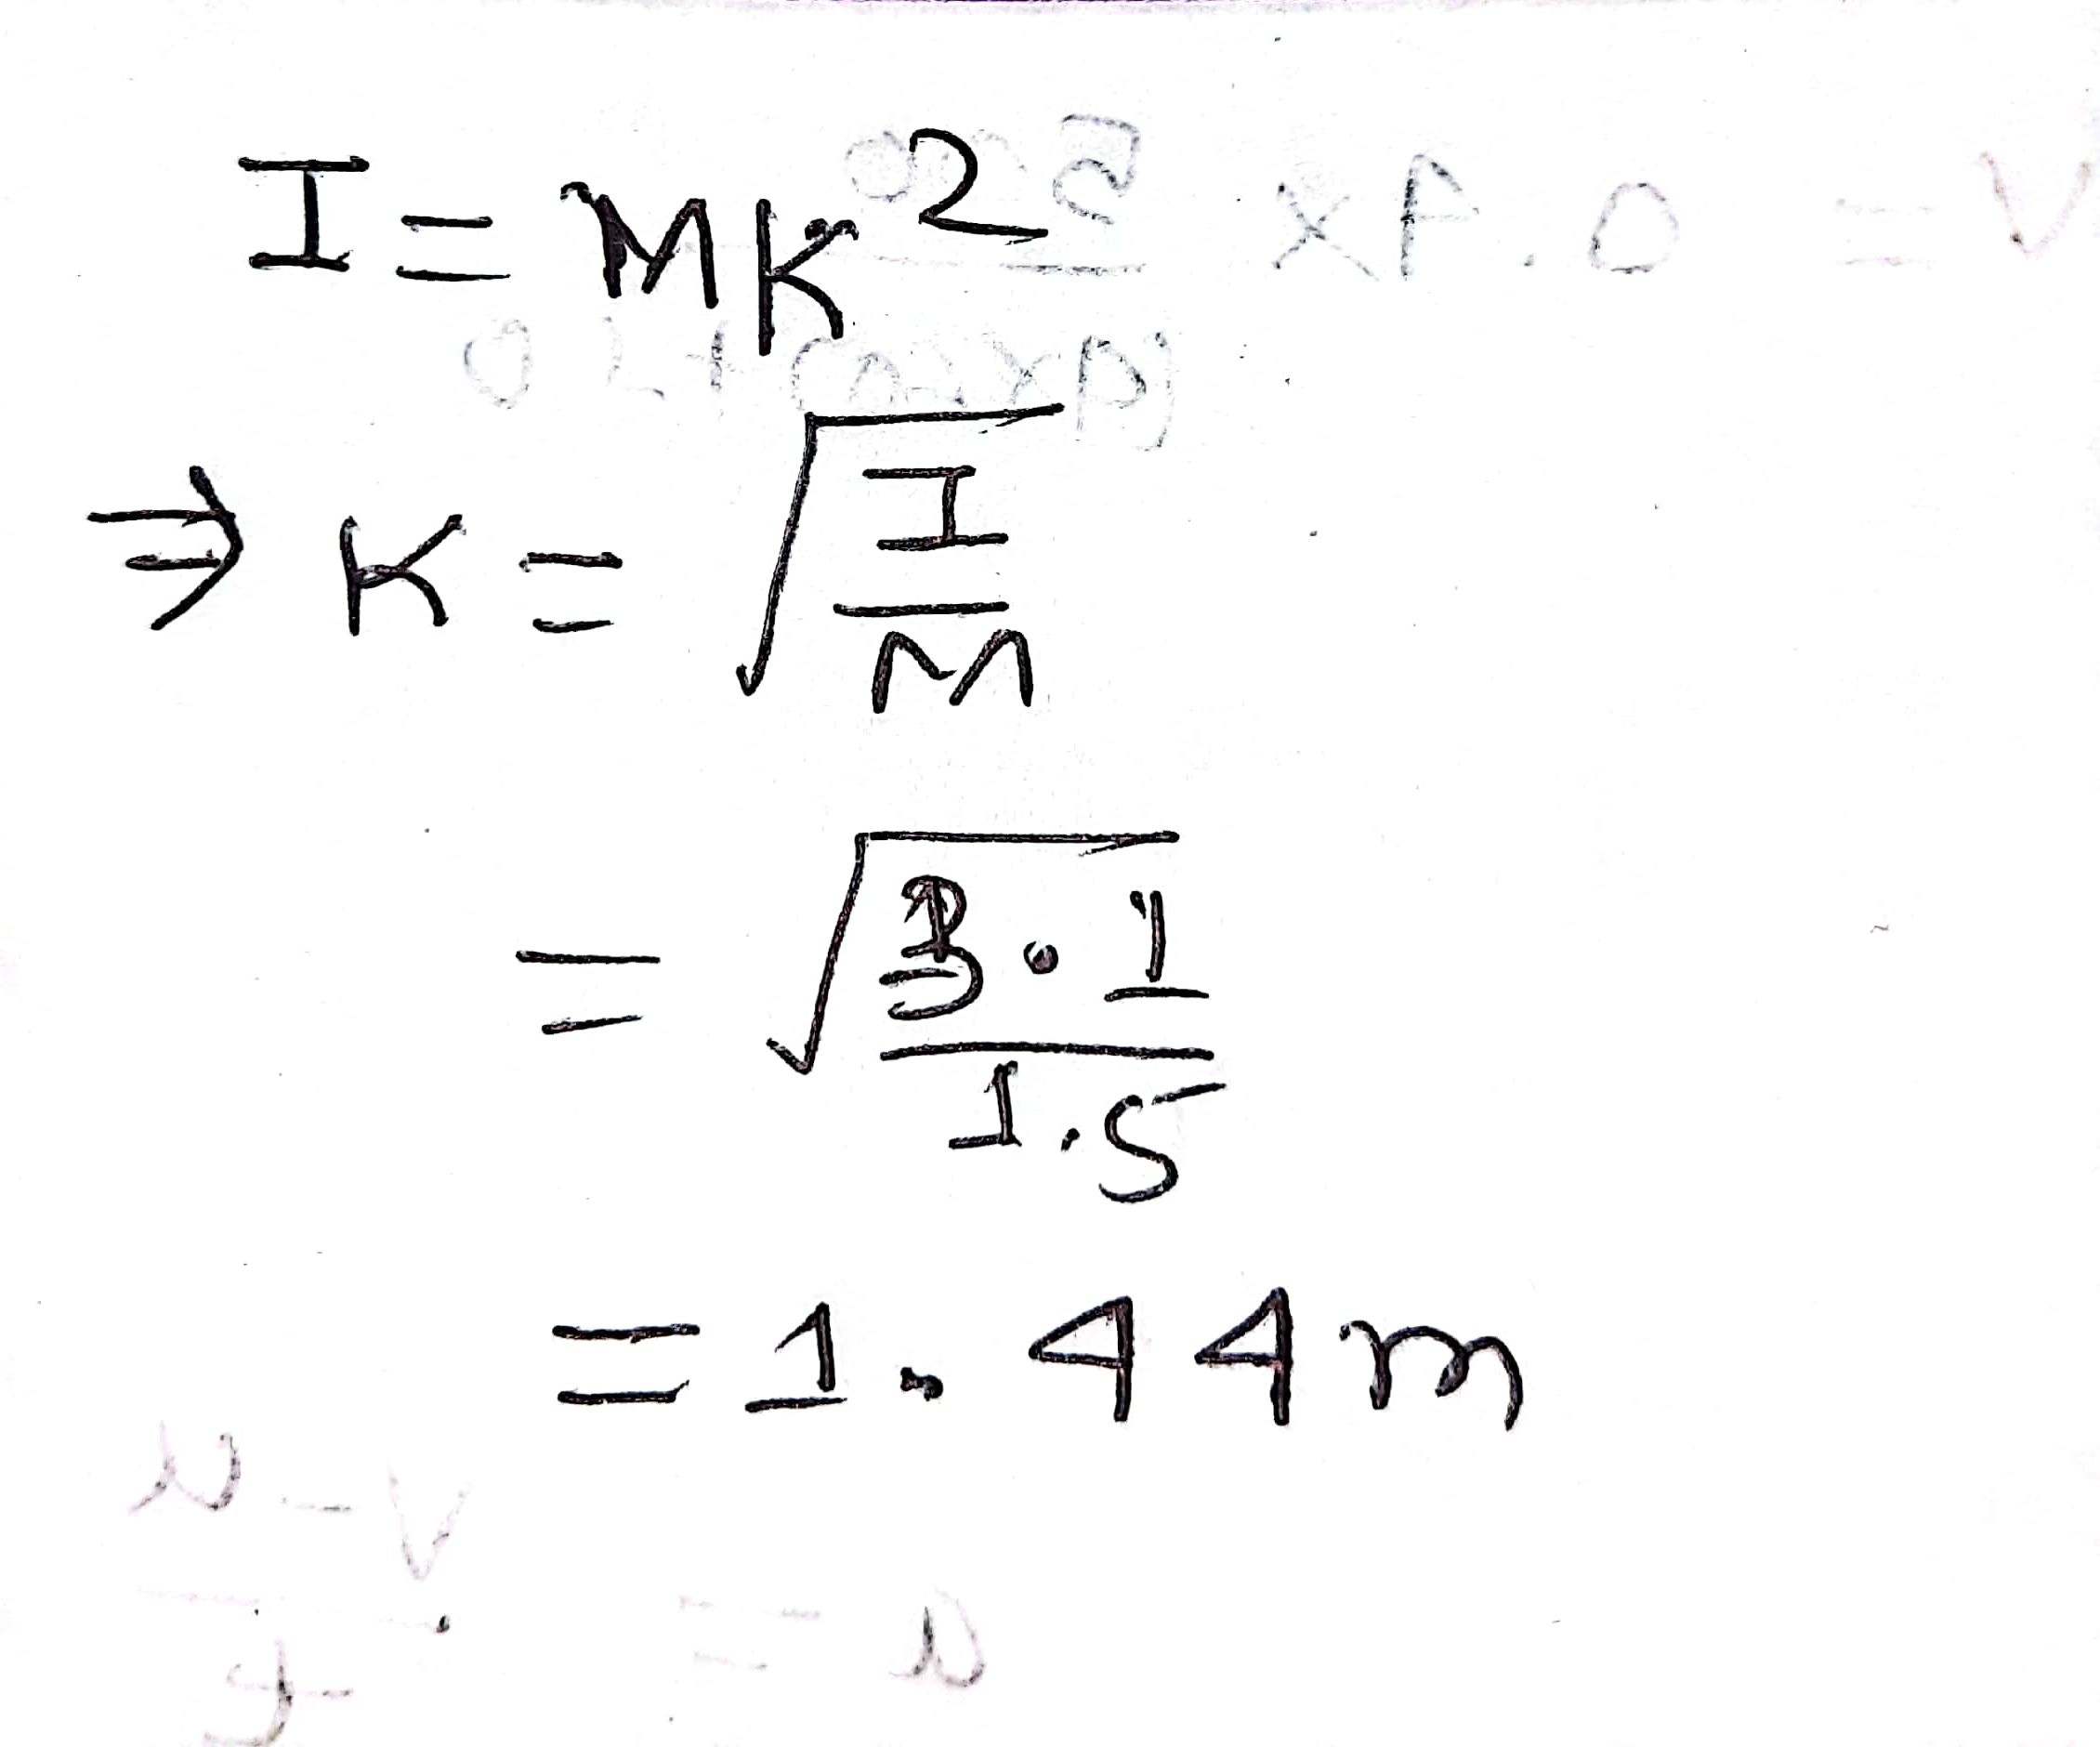 I = MK²
⇒ K = √(I/M)
= √(3.1/1.5)
= 1.44m